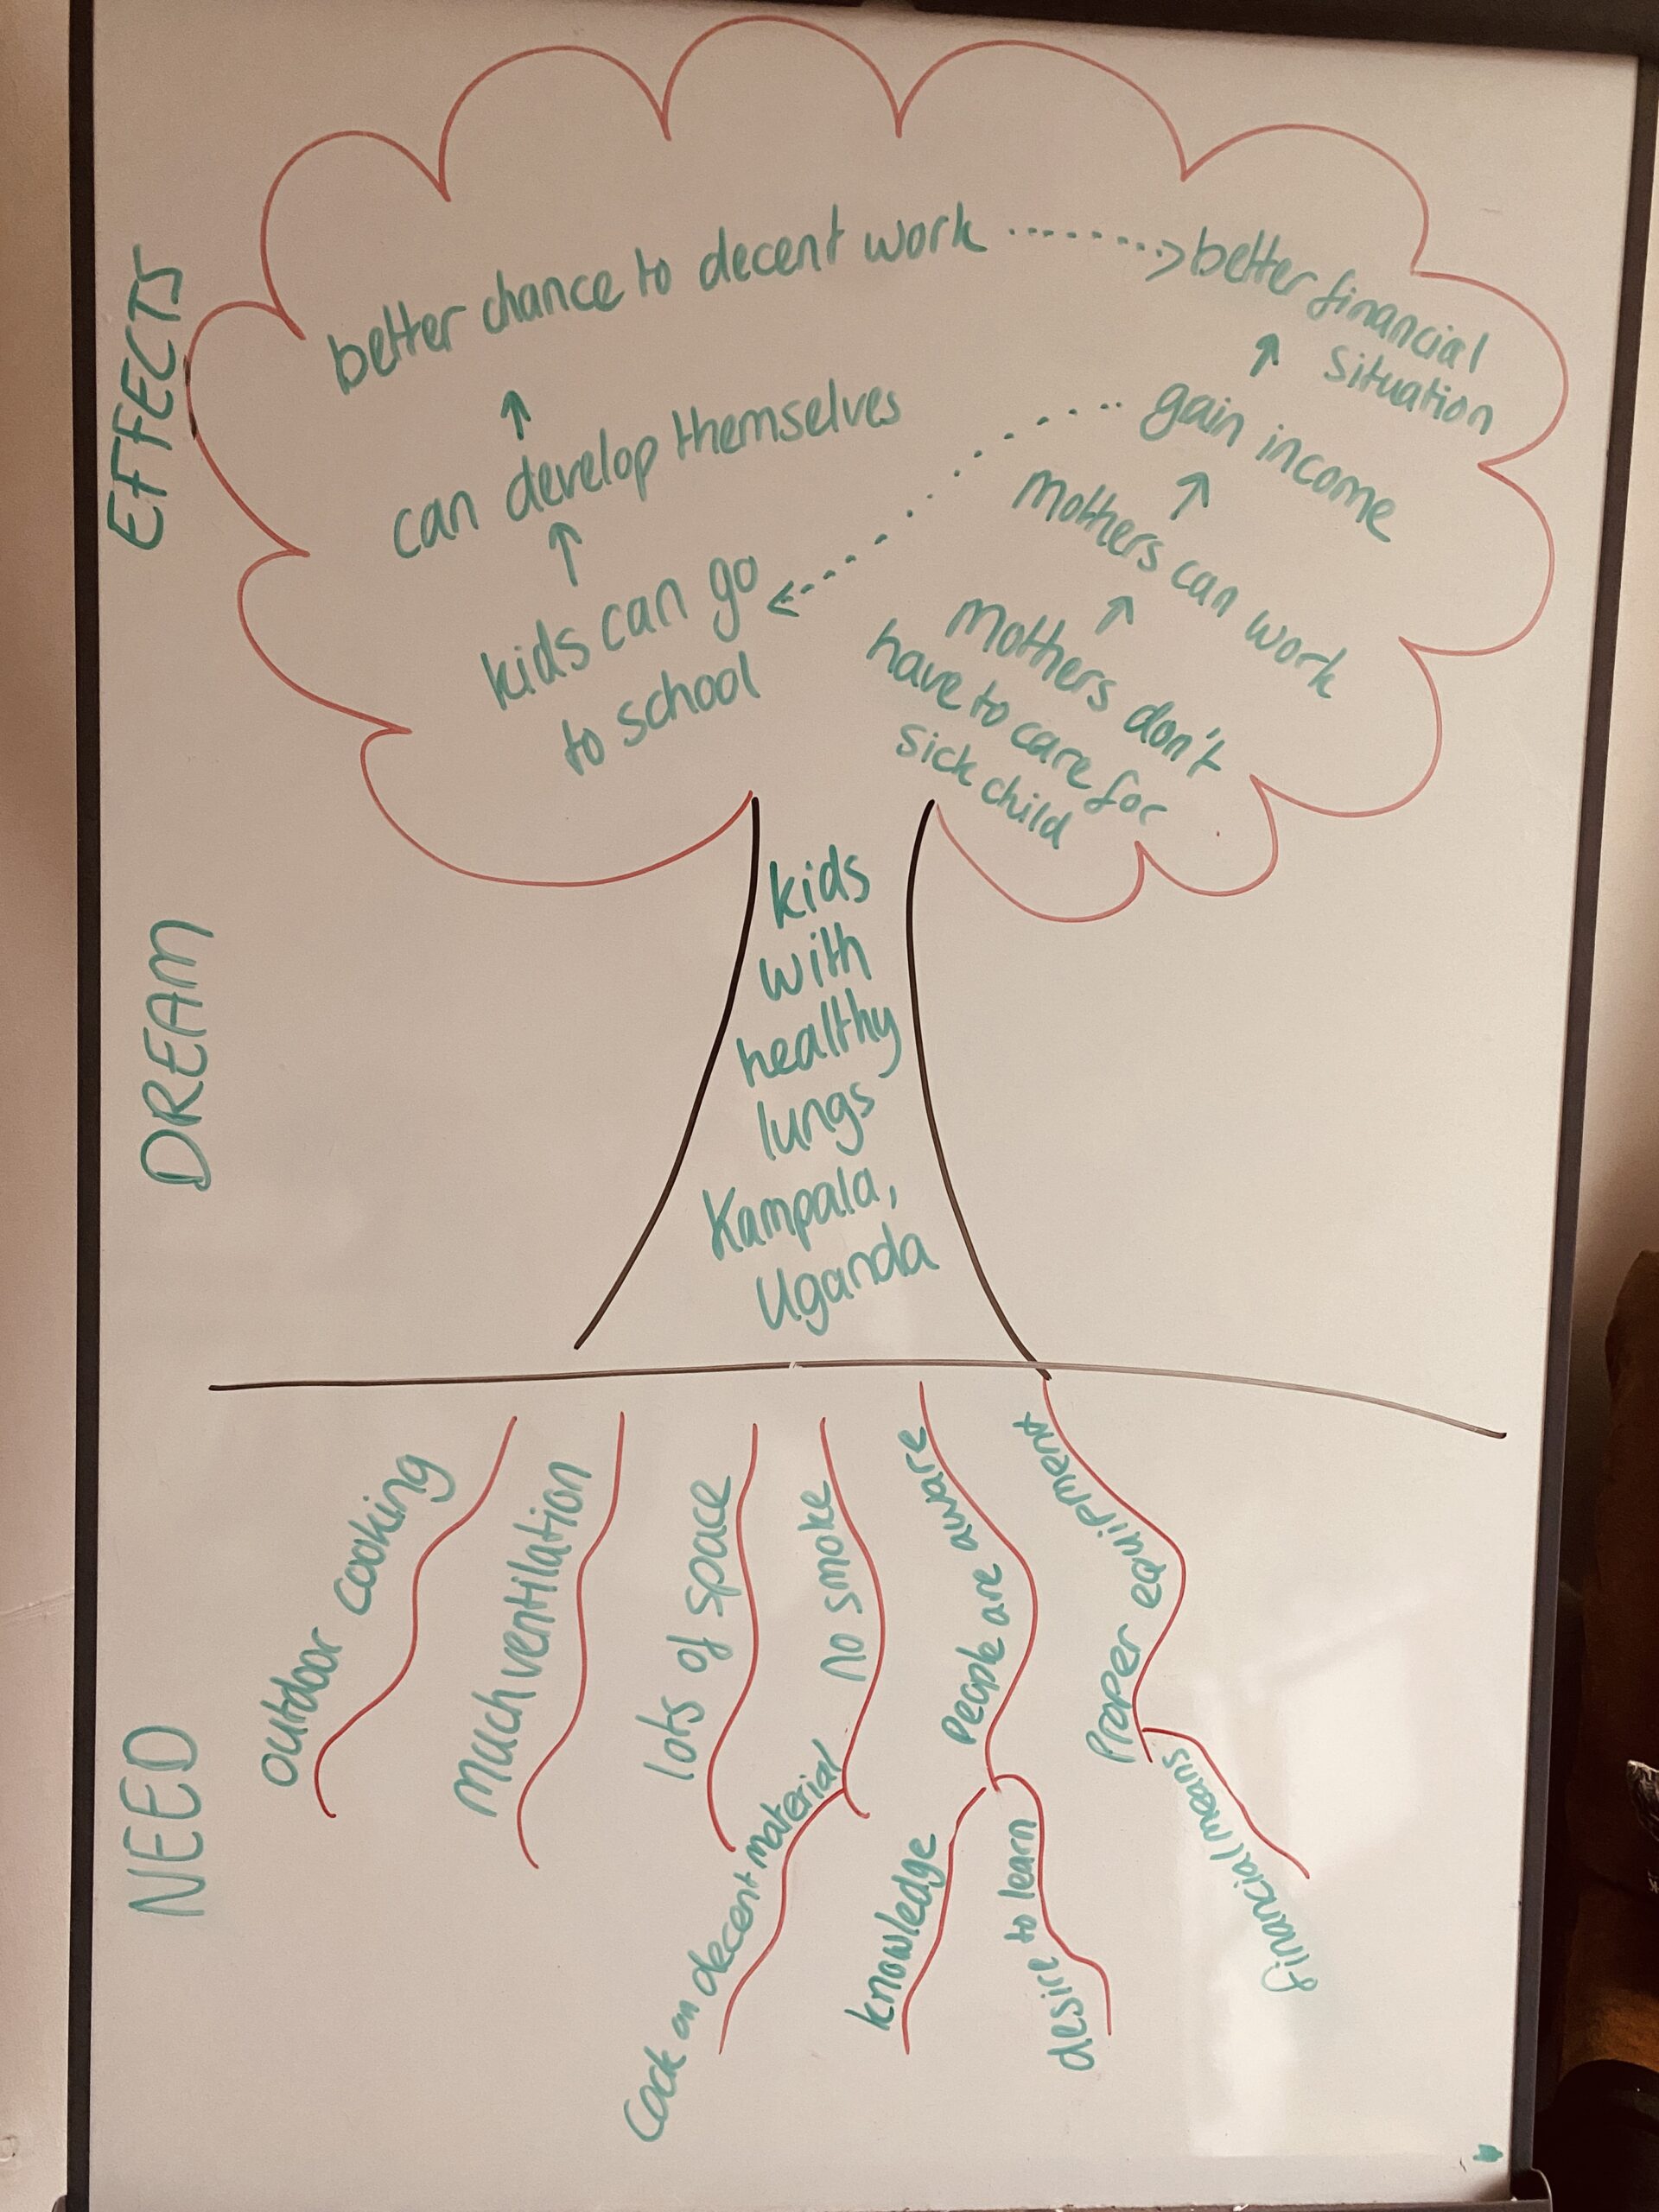 EFFECTS
better chance to decent work
better financial
situation
can develop themselves
gain income
kids can go
to school
Mothers can work
Mothers don't
have to care for
sick child
DREAM
kids
with
healthy
lungs
Kampala,
Uganda
NEED
outdoor cooking
Much ventilation
lots of space
no smoke
People are aware
Proper equipment
Cook on decent material
knowledge
desire to learn
financial means